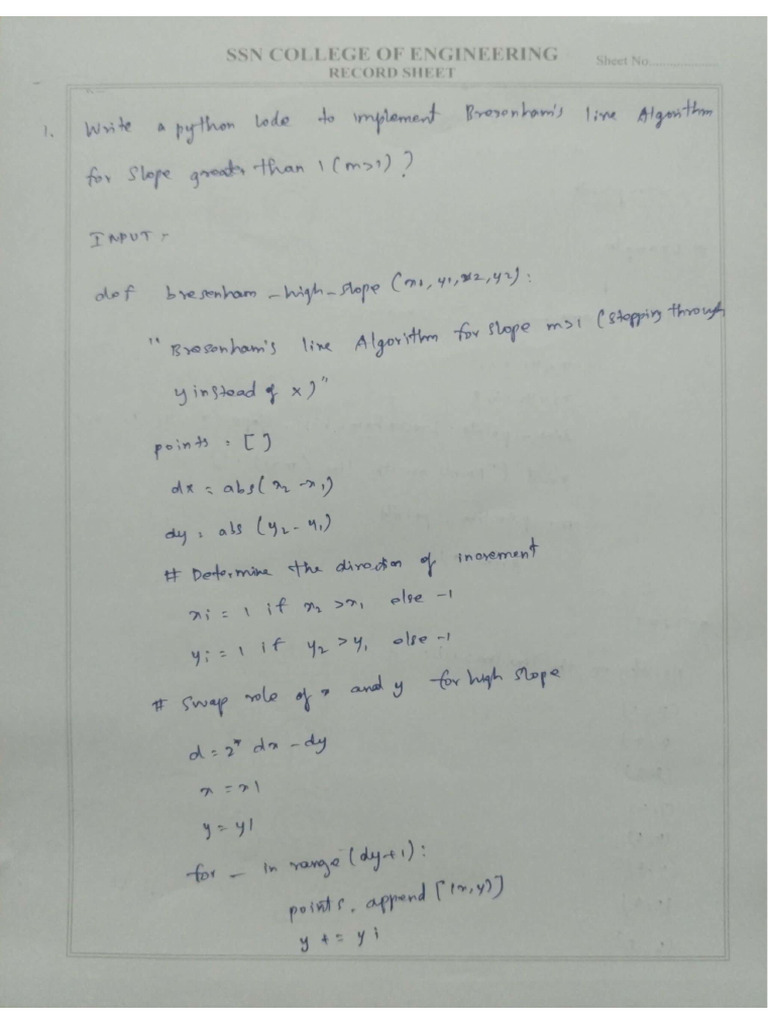 SSN COLLEGE OF ENGINEERING
RECORD SHEET
Sheet No..................
1. Write a python code to implement Bresenham's line Algorithm
for slope greater than 1 (m>1) ?
INPUT :-
def bresenham_high_slope (x1, y1, x2, y2):
" Bresenham's line Algorithm for slope m>1 (stepping through
y instead of x)"
points = []
dx = abs(x2 - x1)
dy = abs (y2 - y1)
# Determine the direction of increment
xi = 1 if x2 > x1 else -1
yi = 1 if y2 > y1 else -1
# Swap role of x and y for high slope
d = 2* dx - dy
x = x1
y = y1
for _ in range (dy+1):
points. append [(x,y)]
y += yi